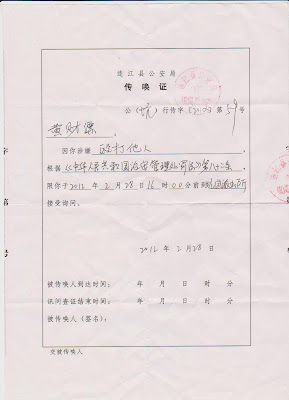 连江县公安局
传唤证
公(坑)行传字〔2012〕第59号
黄财漂:
因你涉嫌 殴打他人
根据《中华人民共和国治安管理处罚法》第八十二条
限你于2012年2月28日16时00分前到派出所
接受询问。
2012年2月28日
被传唤人到达时间: 年 月 日 时 分
讯问查证结束时间: 年 月 日 时 分
被传唤人(签名):
交被传唤人